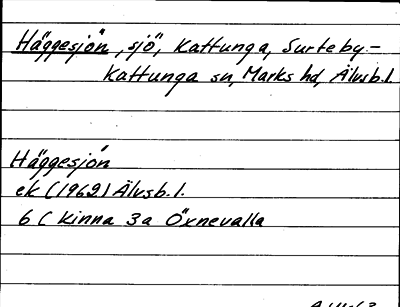 Häggesjön, sjö, Kattunga, Surteby-
Kattunga sn, Marks hd, Älvsb. l.
Häggesjön
ek (1969) Älvsb. l.
6 C Kinna 3a Öxnevalla